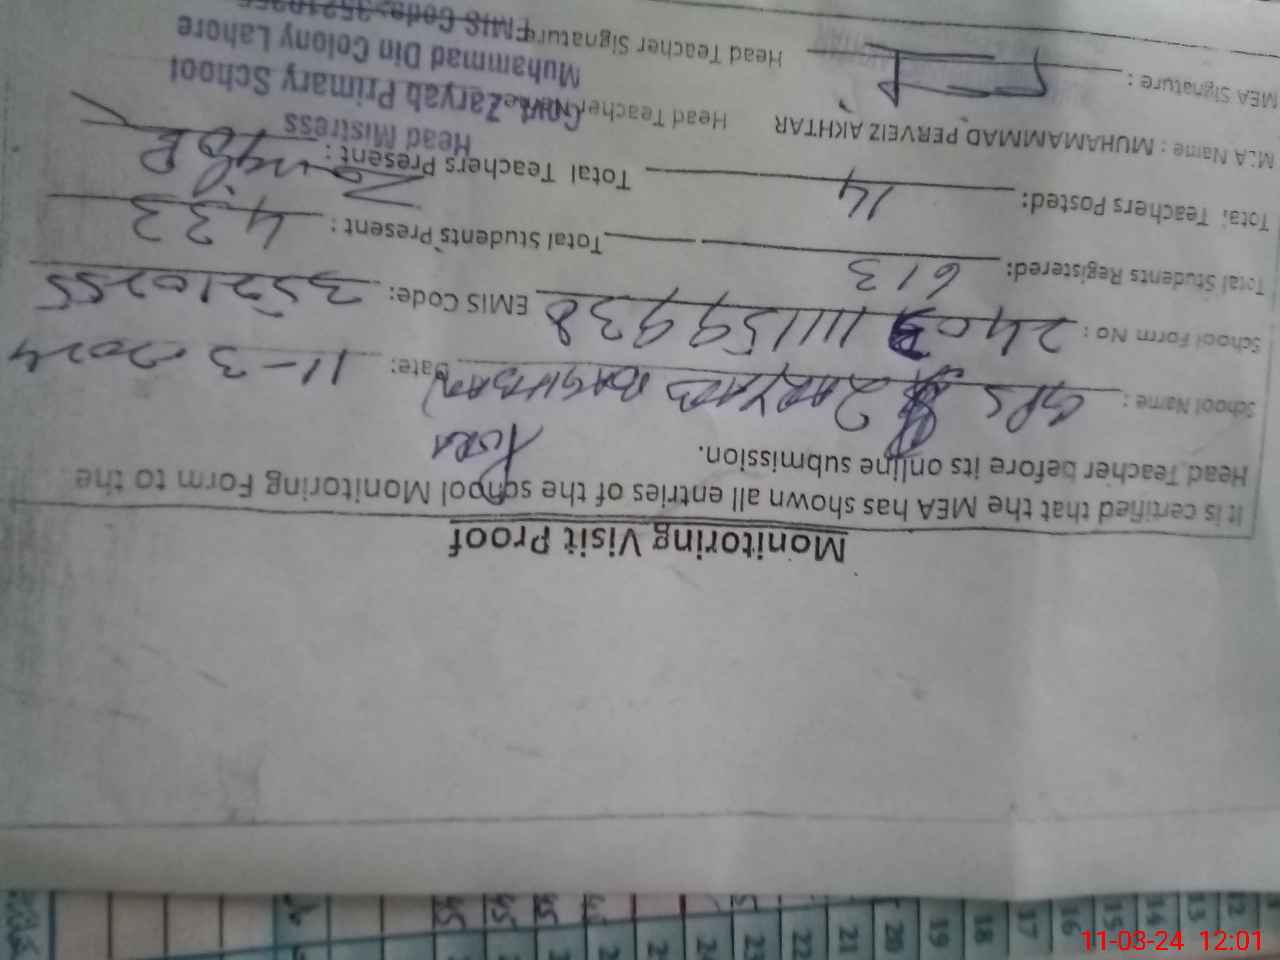 Monitoring Visit Proof
It is certified that the MEA has shown all entries of the school Monitoring Form to the
Head Teacher before its online submission.
PURA
School Name : GPS ZARYAB BAGHBAN Date: 11-3-2024
School Form No : 2403 111159938 EMIS Code: 35210255
Total Students Registered: 613 Total Students Present : 433
Total Teachers Posted: 14 Total Teachers Present :
MEA Name : MUHAMAMMAD PERVEIZ AKHTAR Head Teacher Name
Head Mistress
Govt. Zaryab Primary School
Muhammad Din Colony Lahore
MEA Signature : Head Teacher Signature
EMIS Code:
12 13 14 15 16 17 18 19 20 21 22 23 24
11-03-24 12:01